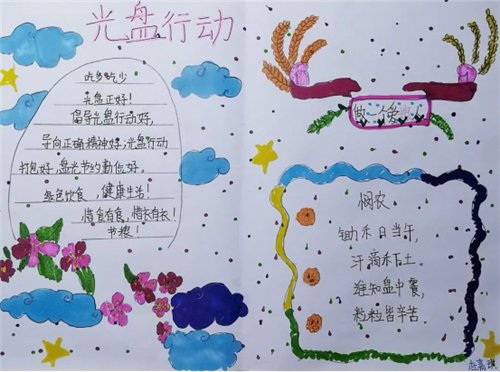 光盘行动
吃多吃少
光盘正好!
倡导光盘行动好,
导向正确精神好,光盘行动
打包好,盘光节约勤俭好。
绿色饮食,健康生活!
惜食有食,惜衣有衣!
节粮!
做一个爱
悯农
锄禾日当午,
汗滴禾下土。
谁知盘中餐,
粒粒皆辛苦。